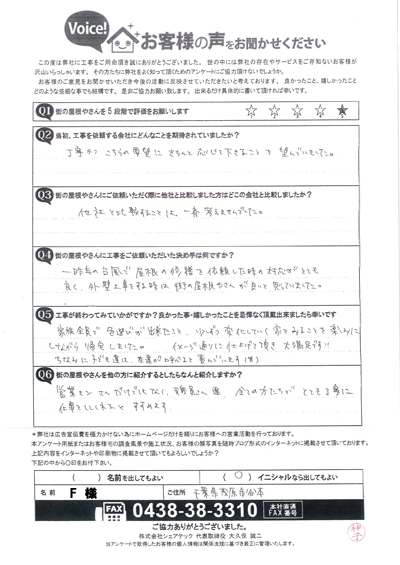 Voice!
お客様の声をお聞かせください
この度は弊社に工事をご用命頂き誠にありがとうございました。世の中には弊社の存在やサービスをご存知ないお客様が
沢山いらっしゃいます。その方たちに弊社をよく知って頂くためのアンケートにご協力頂けないでしょうか。
お客様のご意見をお聞かせいただき今後の活動に反映させていただきたいと考えております。良かったこと、嬉しかったこと
どのような些細な事でも結構です。是非ご協力お願い致します。出来るだけ具体的に書いて頂ければ幸いです。
Q1 街の屋根やさんを5段階で評価をお願いします ☆ ☆ ☆ ☆ ★
Q2 当初、工事を依頼する会社にどんなことを期待されていましたか?
丁寧かつ こちらの要望に きちんと 応じて下さること を 望んでいました。
Q3 街の屋根やさんにご依頼いただく際に他社と比較しました方はどこの会社と比較しましたか?
他社と比較することは、一番 考えませんでした。
Q4 街の屋根やさんに工事をご依頼いただいた決め手は何ですか?
一昨年の台風で 屋根の修理を依頼した時の対応がとても
良く、外壁工事をする時は 街の屋根やさんが良いと 決めていました。
Q5 工事が終わってみていかがですか?良かった事・嬉しかったことを忌憚なく頂戴出来ましたら幸いです
家族全員で 色選びが出来たこと、少しずつ変化していく家をみることを楽しみに
しながら 帰宅しました。 イメージ通りに仕上げて頂き 大満足です!!
ちなみに子ども達は、友達が
喜んでいます(笑)
Q6 街の屋根やさんを他の方に紹介するとしたらなんと紹介しますか?
営業マンさんだけでなく、職人さん達、全ての方たちが とても丁寧に
仕事をしてくれると すすめます。
*弊社は広告宣伝費を極力かけない為にホームページだけを頼りにお客様への営業活動を行っております。
本アンケート用紙またはお客様宅の調査風景や施工状況、お客様の顔写真を随時ブログ形式のインターネットに掲載させて頂いております。
上記内容をインターネットや印刷物に掲載させて頂いてもよろしいでしょうか?
下記の中から〇印をお付下さい。
( ) 名前を出してもよい ( 〇 ) イニシャルなら出してもよい
名前 F 様 ご住所 千葉県茂原市
FAX 0438-38-3310 本社直通 FAX番号
ご協力ありがとうございました。
株式会社シェアテック 代表取締役 大久保 誠二
当アンケートで取得したお客様の個人情報は関係法規に基づき厳正に管理いたします。